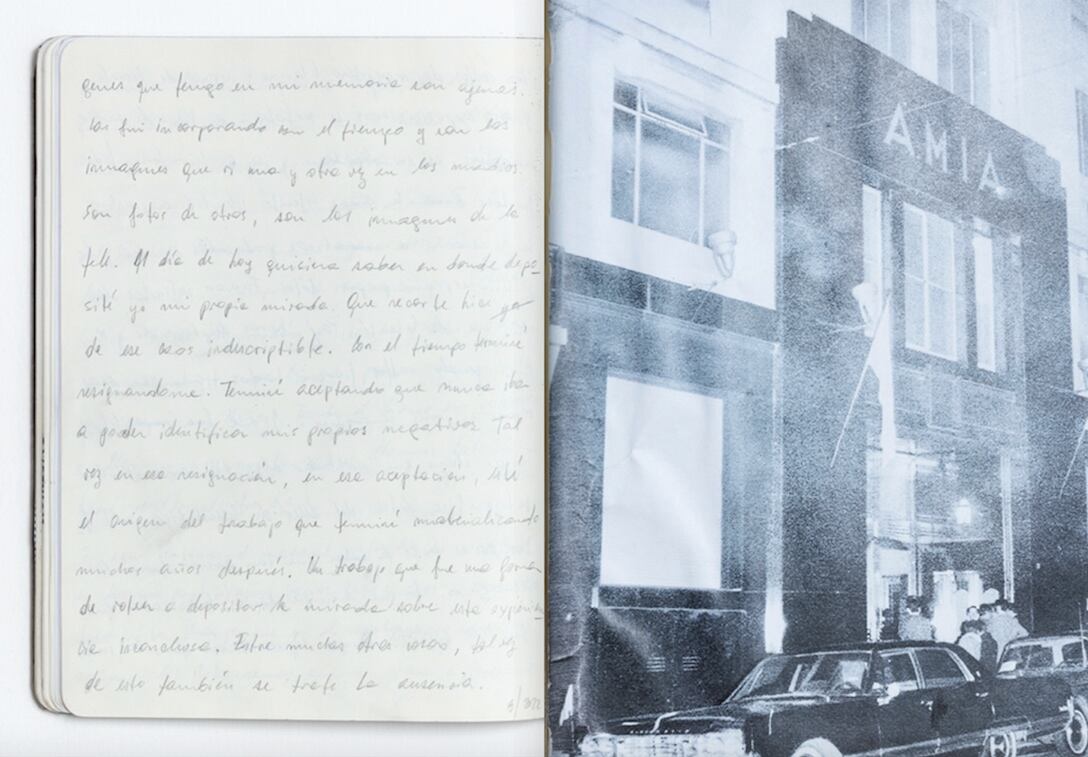 genes que tengo en mi memoria son ajenas.
Las fui incorporando con el tiempo y son las
imagenes que vi una y otra vez en los medios.
Son fotos de otros, son las imagenes de la
tele. Al día de hoy quisiera saber en donde depo-
sité yo mi propia mirada. Que recorte hice yo
de ese caos indescriptible. Con el tiempo terminé
resignandome. Terminé aceptando que nunca iba
a poder identificar mis propios negativos. Tal
vez en esa resignación, en esa aceptación, esté
el origen del trabajo que terminé materializando
muchos años después. Un trabajo que fue una forma
de volver a depositar la mirada sobre esta experien-
cia inconclusa. Entre muchas otras cosas, tal vez
de esto también se trate la ausencia.
AMIA